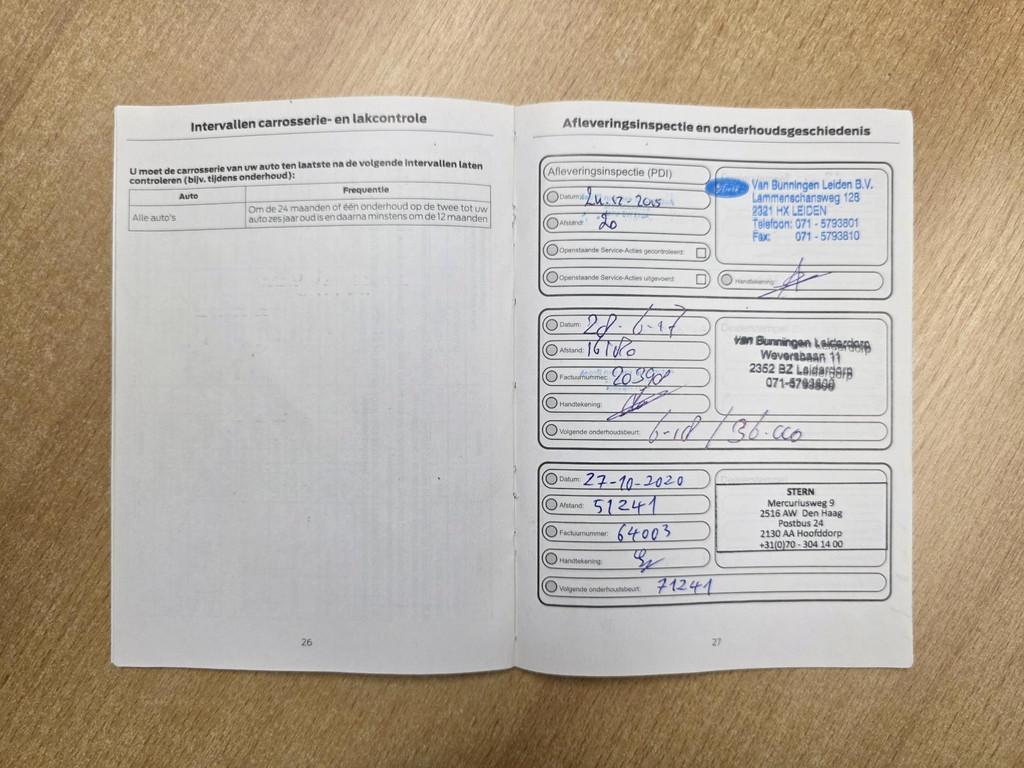 Intervallen carrosserie- en lakcontrole
U moet de carrosserie van uw auto ten laatste na de volgende intervallen laten
controleren (bijv. tijdens onderhoud):
Auto
Frequentie
Alle auto's
Om de 24 maanden of één onderhoud op de twee tot uw
auto zes jaar oud is en daarna minstens om de 12 maanden
26
Afleveringsinspectie en onderhoudsgeschiedenis
Afleveringsinspectie (PDI)
Datum: 24-12-2015
Afstand: 20
Openstaande Service-Acties gecontroleerd:
Openstaande Service-Acties uitgevoerd:
Van Bunningen Leiden B.V.
Lammenschansweg 128
2321 HX LEIDEN
Telefoon: 071 - 5793801
Fax: 071 - 5793810
Handtekening:
Datum: 28-6-17
Afstand:
Factuurnummer: 20398
Handtekening:
Volgende onderhoudsbeurt: 6-18 / 36.000
van Bunningen Leiderdorp
Weversbaan 11
2352 BZ Leiderdorp
Datum: 27-10-2020
Afstand: 51241
Factuurnummer: 64003
Handtekening:
Volgende onderhoudsbeurt: 71241
STERN
Mercuriusweg 9
2516 AW Den Haag
Postbus 24
2130 AA Hoofddorp
+31(0)70 - 304 14 00
27